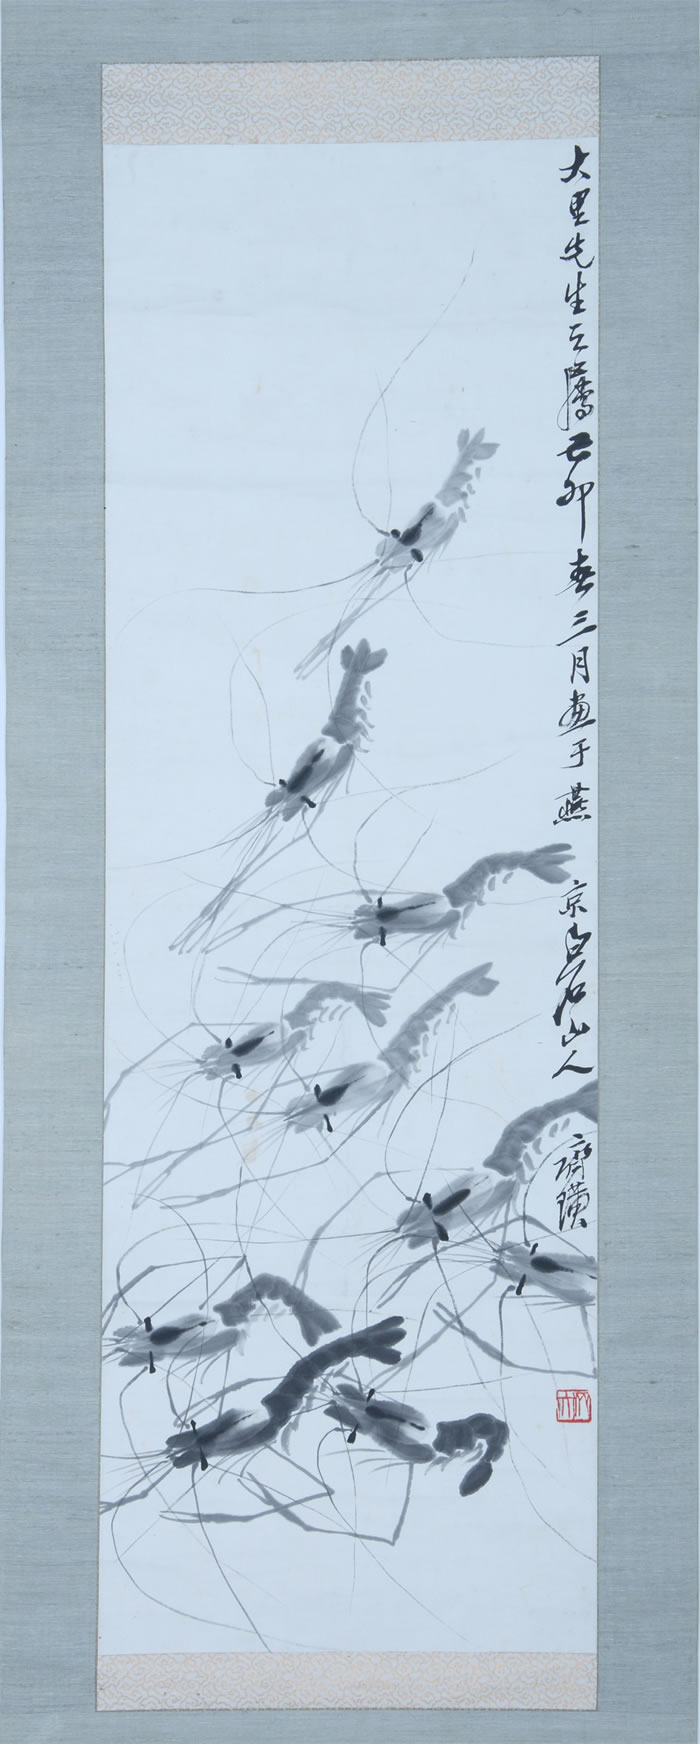 大里先生之属己卯春三月画于燕京白石山人
齐璜